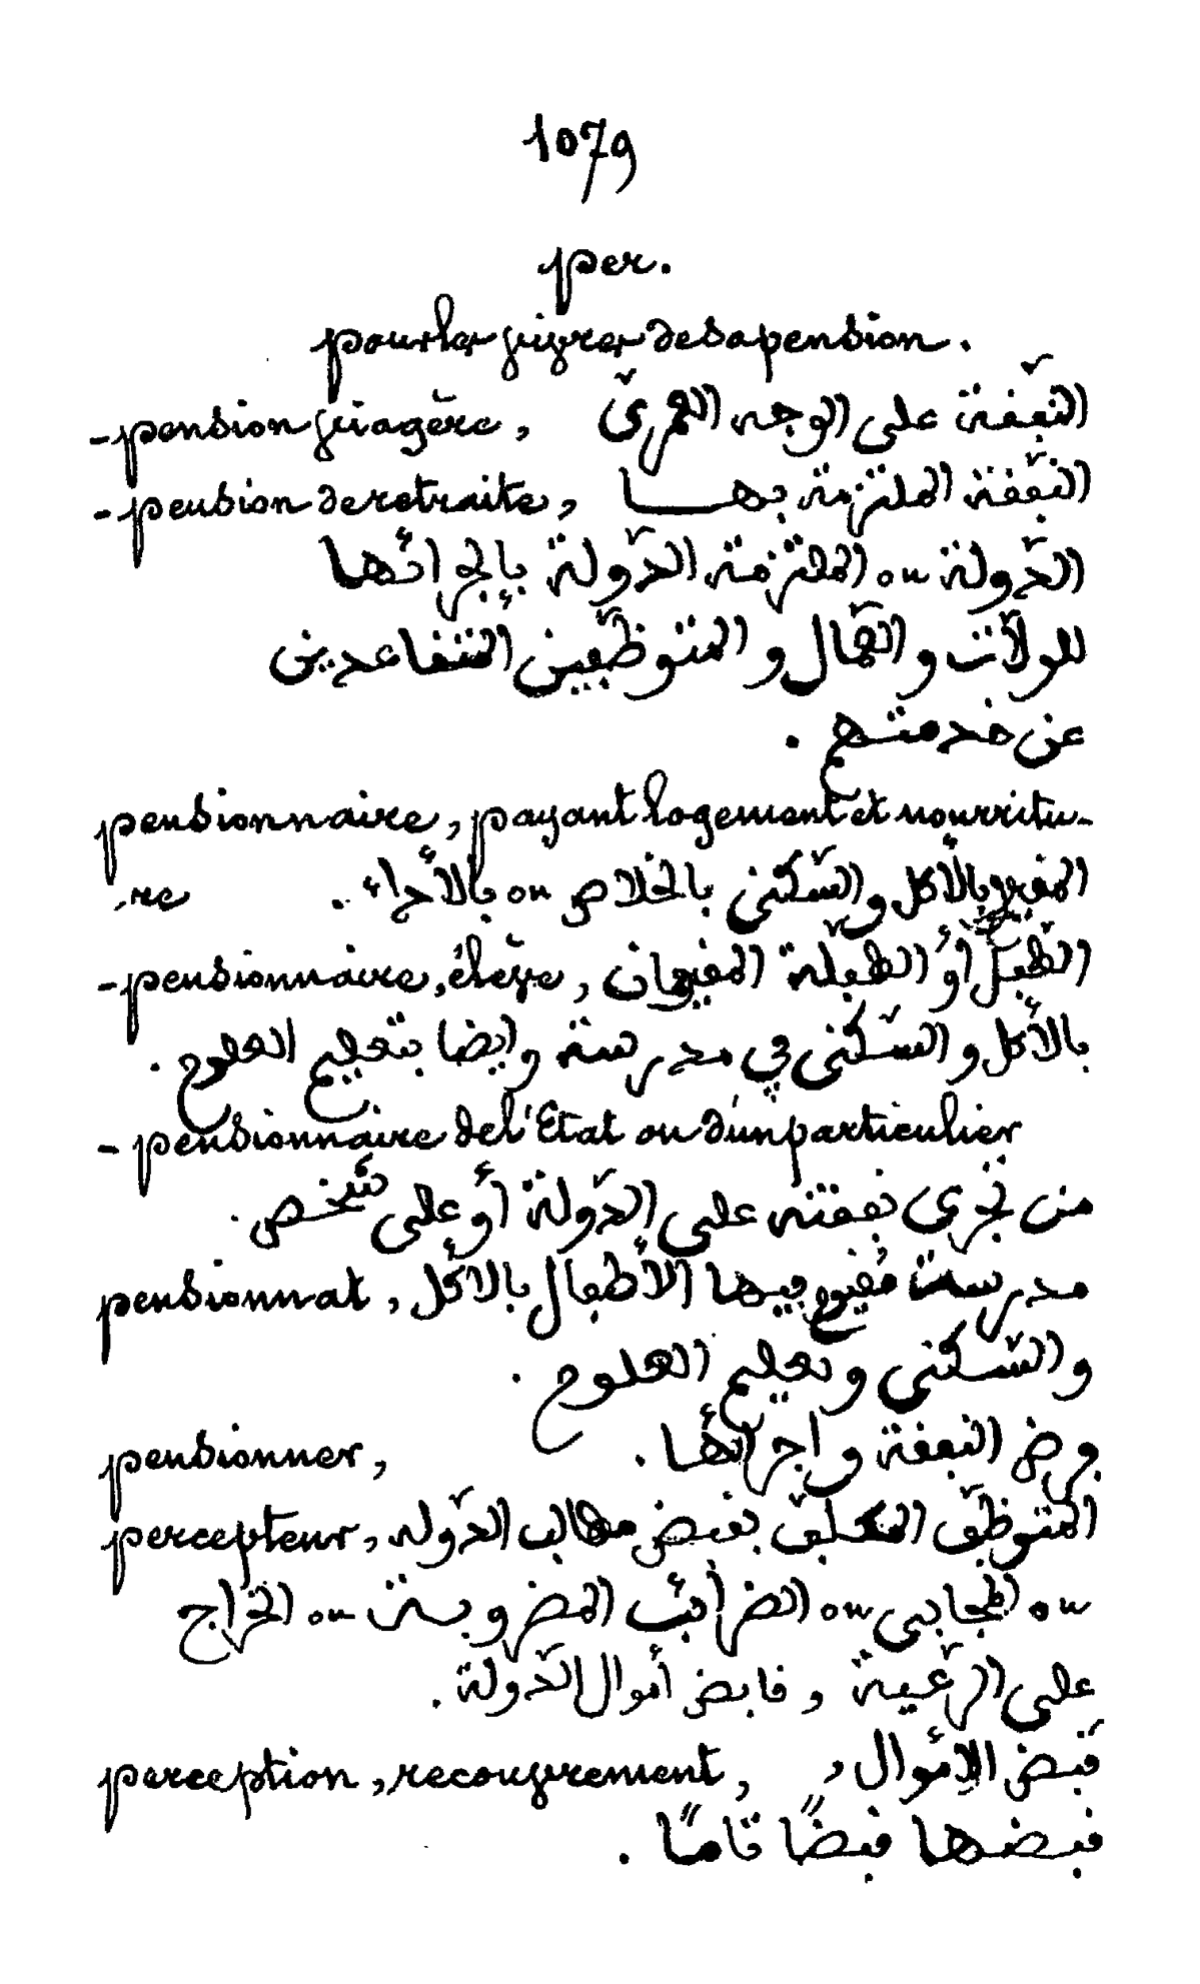 1079
per.
pour les vivres de sa pension.
- pension viagère, النّفقة على الوجه العمريّ
- pension de retraite, النّفقة الملتزمة بهـــا
الدّولة ou الملتزمة الدّولة بإجرائها
للولات والعمّال و المتوظّفين المتقاعدين
عن خدمتهم .
pensionnaire, payant logement et nourritu-
re المقيم بالأكل والسّكنى بالخلاص ou بالأداء .
- pensionnaire, élève, الطّفل أو الطّفلة المقيمان
بالأكل و السّكنى في مدرسة وايضا بتعليم العلوم .
- pensionnaire de l'État ou d'un particulier
من تجرى نفقته على الدّولة أو على شخص .
pensionnat, مدرسة مقيم فيها الأطفال بالأكل
والسّكنى وتعليم العلوم .
pensionner, فرض النّفقة و اجرائها .
percepteur, المتوظّف المكلّف بقبض مطالب الدّولة
ou المجابي ou الضرائب المضروبة ou الخراج
على الرّعية و قابض أموال الدّولة .
perception, recouvrement, قبض الأموال ,
قبضها قبضًا تامًا .